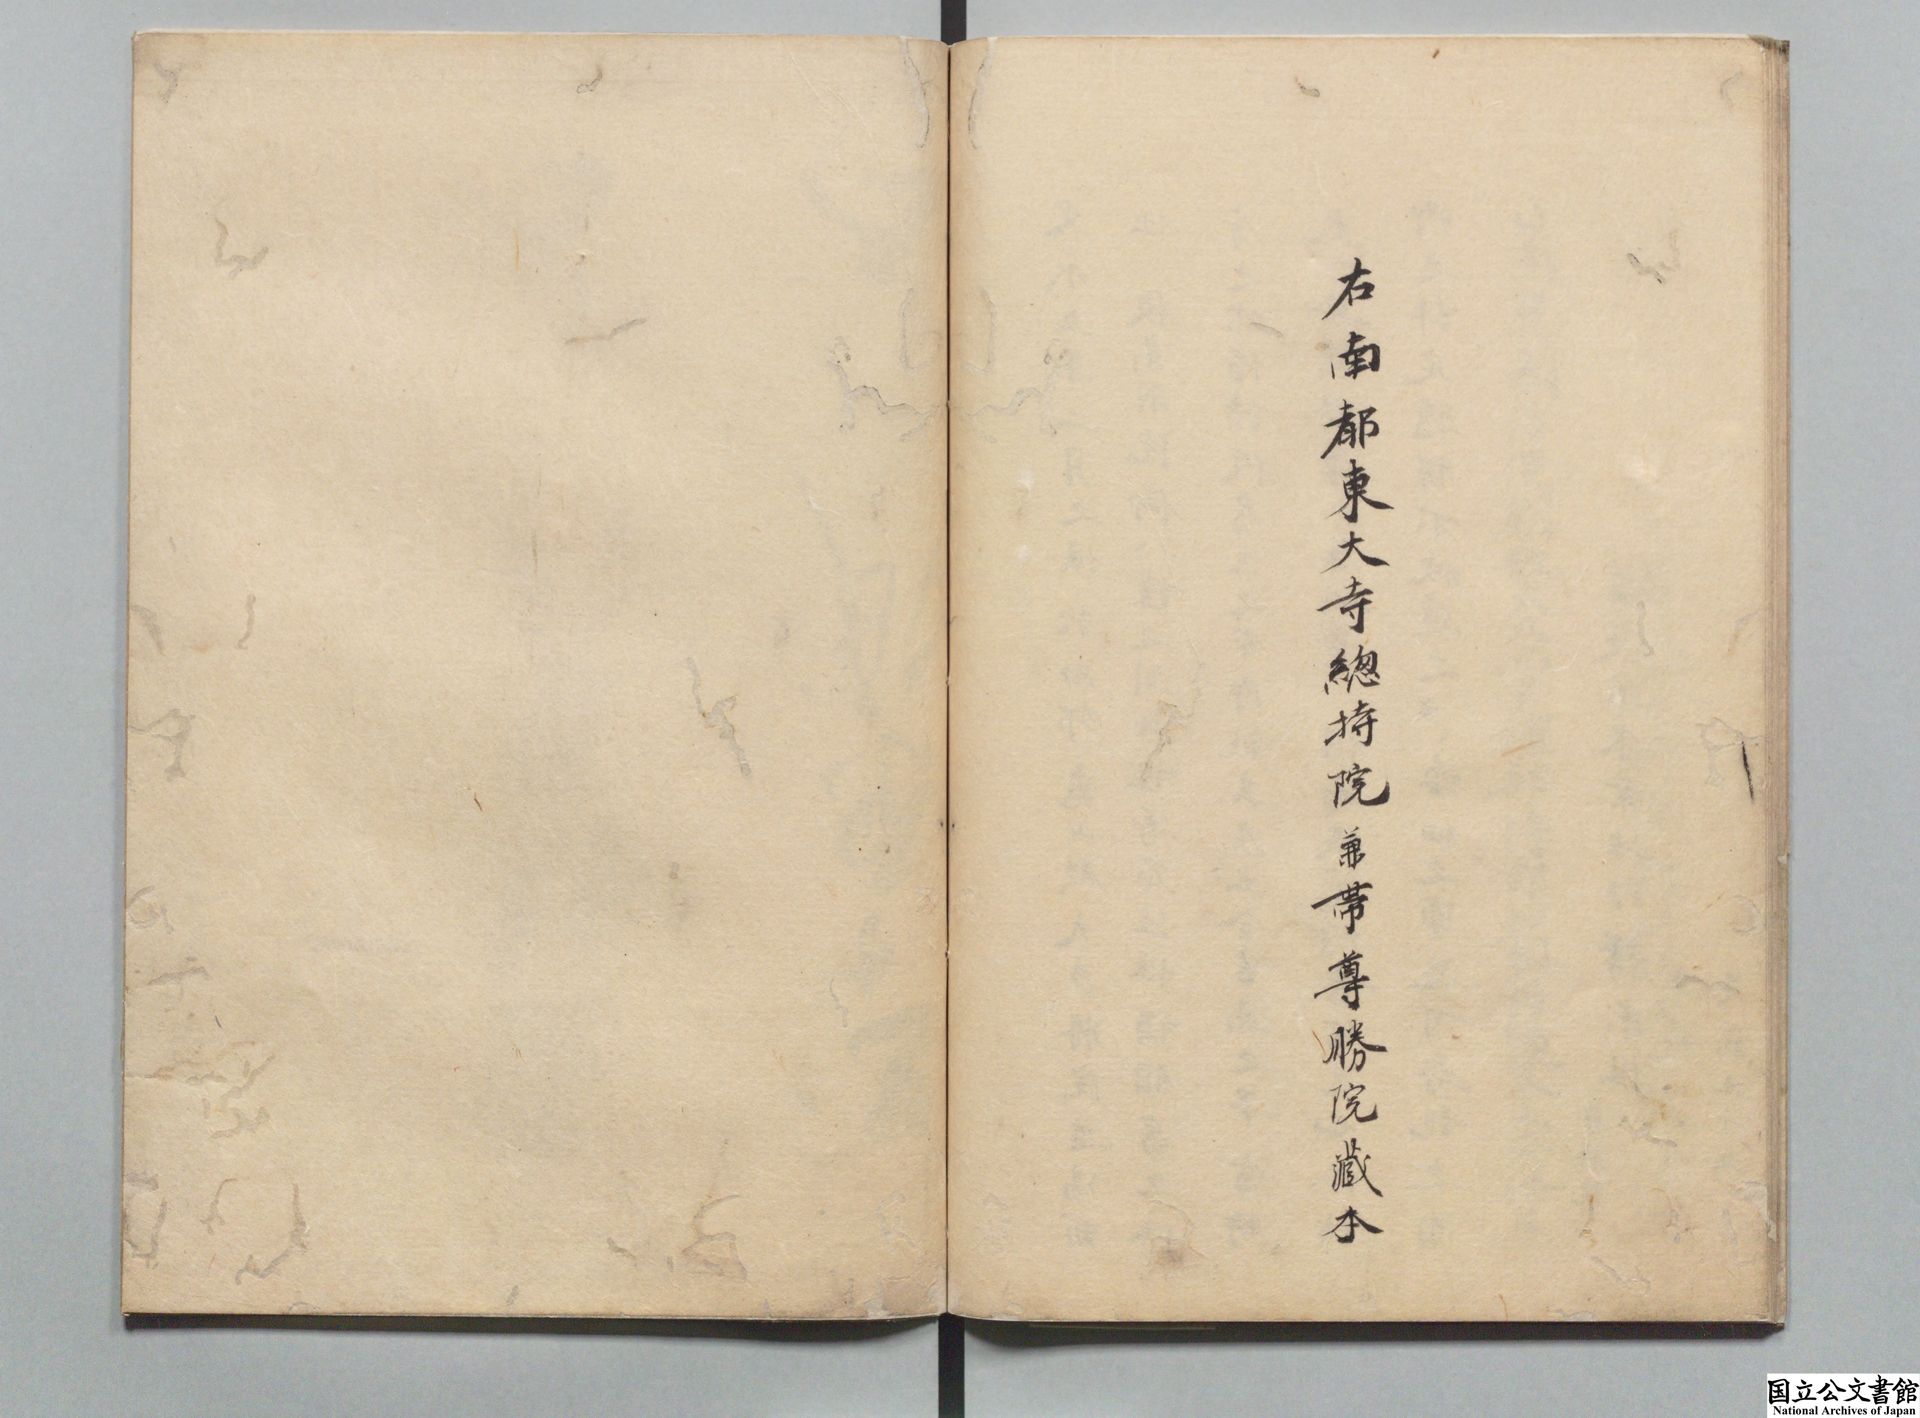 右南都東大寺總持院兼帶尊勝院藏本
国立公文書館
National Archives of Japan